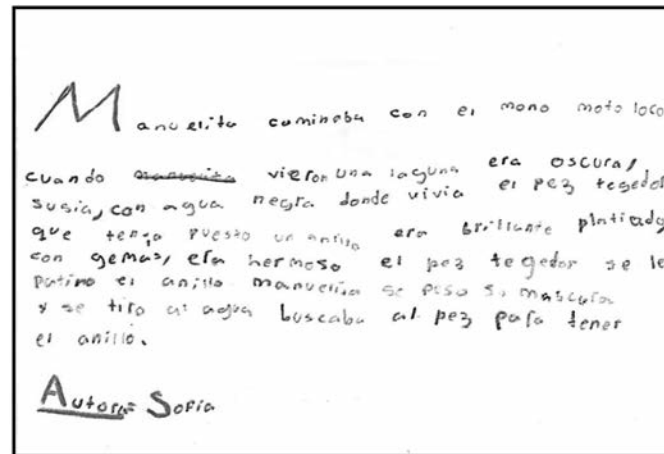 Manuelita caminaba con el mono moto loco
cuando manuelita vieron una laguna era oscura,
susia, con agua negra donde vivia el pez tegedor
que tenia puesto un anillo era brillante platiado
con gemas, era hermoso el pez tegedor se le
patino el anillo manuelita se puso su mascara
y se tiro al agua buscaba al pez para tener
el anillo.
Autora= Sofia